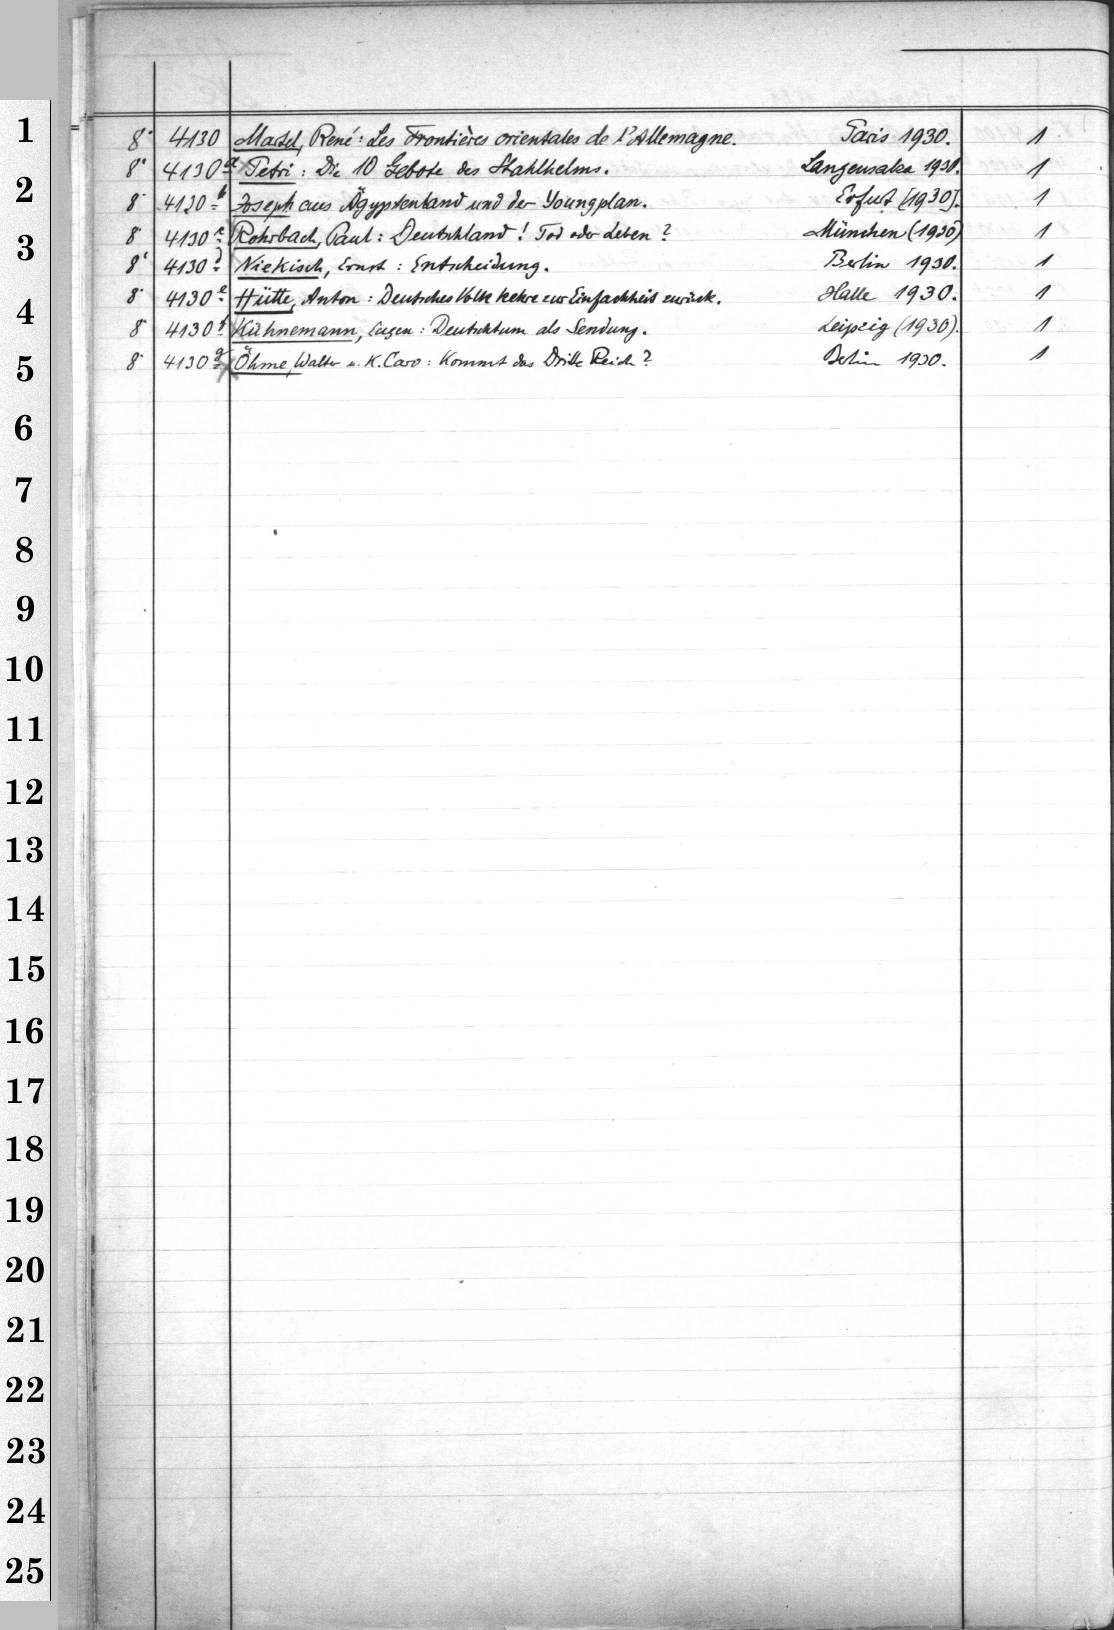 1
8° 4130 Martel, René: Les Frontières orientales de l'Allemagne. Paris 1930. 1
8° 4130a Petri: Die 10 Gebote des Stahlhelms. Langensalza 1930. 1
2
8° 4130b Joseph aus Ägyptenland und der Youngplan. Erfurt [1930]. 1
8° 4130c Rohrbach, Paul: Deutschland! Tod oder Leben? München (1930) 1
3
8° 4130d Niekisch, Ernst: Entscheidung. Berlin 1930. 1
8° 4130e Hütte, Anton: Deutsches Volk kehre zur Einfachheit zurück. Halle 1930. 1
4
8° 4130f Kühnemann, Eugen: Deutschtum als Sendung. Leipzig (1930). 1
8° 4130g Öhme, Walter u. K. Caro: Kommt das Dritte Reich? Berlin 1930. 1
5
6
7
8
9
10
11
12
13
14
15
16
17
18
19
20
21
22
23
24
25